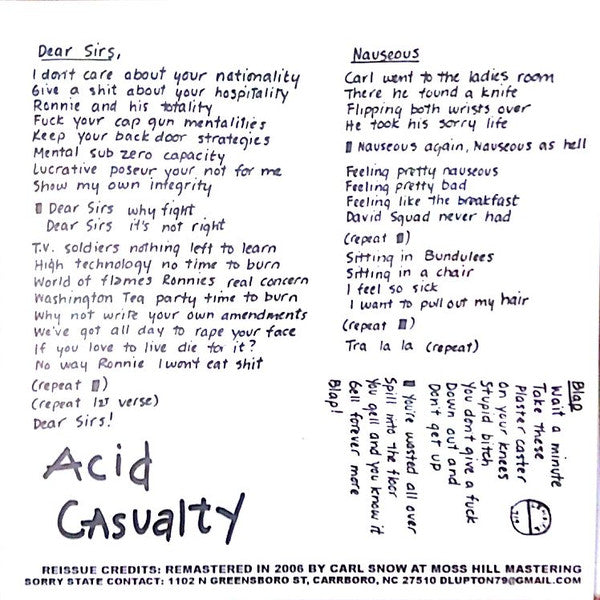 Dear Sirs,
I don't care about your nationality
Give a shit about your hospitality
Ronnie and his totality
Fuck your cap gun mentalities
Keep your back door strategies
Mental sub zero capacity
Lucrative poseur your not for me
Show my own integrity
Dear Sirs why fight
Dear Sirs it's not right
T.V. soldiers nothing left to learn
High technology no time to burn
World of flames Ronnies real concern
Washington Tea party time to burn
Why not write your own amendments
We've got all day to rape your face
If you love to live die for it?
No way Ronnie I won't eat shit
(repeat )
(repeat 1st verse)
Dear Sirs!
Acid
Casualty
Nauseous
Carl went to the ladies room
There he found a knife
Flipping both wrists over
He took his sorry life
Nauseous again, Nauseous as hell
Feeling pretty nauseous
Feeling pretty bad
Feeling like the breakfast
David Squad never had
(repeat )
Sitting in Bundulees
Sitting in a chair
I feel so sick
I want to pull out my hair
(repeat )
Tra la la (repeat)
Blap
Wait a minute
Take these
Plaster caster
On your knees
Stupid bitch
You don't give a fuck
Down out and
Don't get up
You're wasted all over
Spill into the floor
You gell and you know it
Gell forever more
Blap!
REISSUE CREDITS: REMASTERED IN 2006 BY CARL SNOW AT MOSS HILL MASTERING
SORRY STATE CONTACT: 1102 N GREENSBORO ST, CARRBORO, NC 27510 DLUPTON79@GMAIL.COM